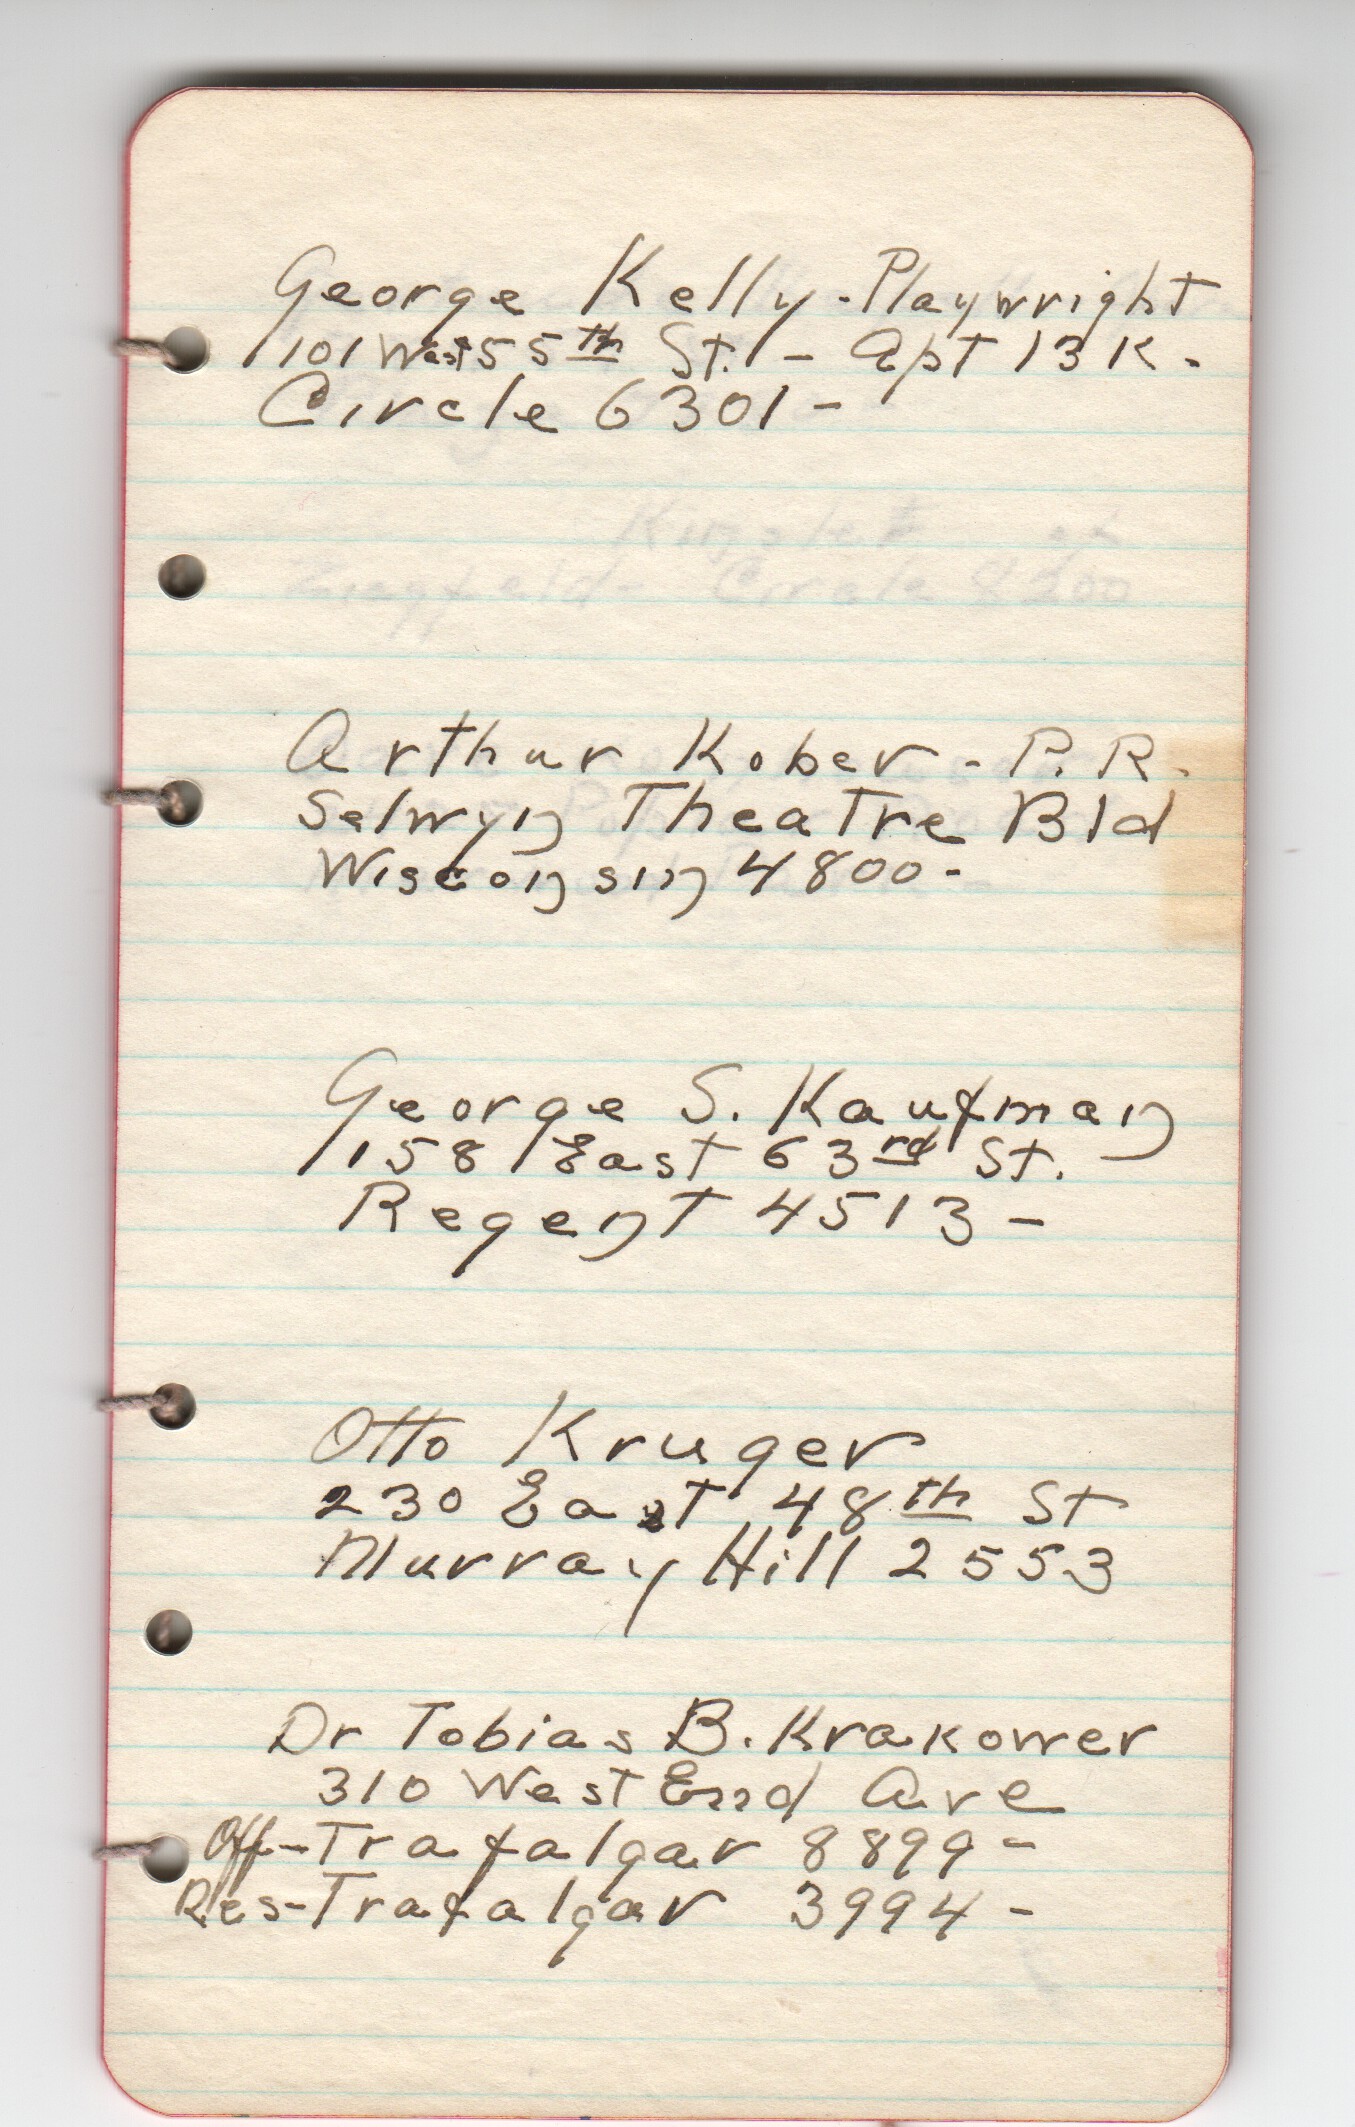 George Kelly - Playwright
101 West 55th St. - Apt 13K.
Circle 6301 -
Ziegfeld - Circle 8200
Arthur Kober - P.R.
Selwyn Theatre Bld
Wisconsin 4800 -
George S. Kaufman
158 East 63rd St.
Regent 4513 -
Otto Kruger
230 East 48th St
Murray Hill 2553
Dr Tobias B. Krakower
310 West End Ave
Off - Trafalgar 8899 -
Res - Trafalgar 3994 -